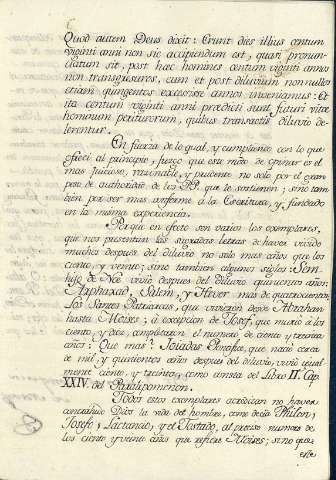 Quod autem Deus dixit: Erunt dies illius centum
viginti anni non sic accipiendum est, quasi pronun-
ciatum sit, post hæc homines centum viginti annos
non transgresuros, cum et post diluvium nonnullos
etiam quingentos excesisse annos inveniamus: Et
ita centum viginti anni prædicti sunt futuri vitæ
hominum periturorum, quibus transactis diluvio de-
lerentur.
En fuerza de lo qual, y cumpliendo con lo que
ofrecí al principio, juzgo que este modo de opinar es el
mas juicioso, razonable, y prudente no solo por el gran
peso de authoridad de los PP. que le sostienen; sino tam
bien por ser mas conforme a la Escritura, y fundado
en la misma experiencia.
Porque en efecto son varios los exemplares,
que nos presentan las sagradas letras de haver vivido
muchos despues del diluvio no solo mas años que los
ciento, y veinte; sino tambien algunos siglos: Sem
hijo de Noè vivió despues del diluvio quinientos años;
Arphaxad, Salem, y Hever mas de quatrocientos.
Los Santos Patriarcas, que vivieron desde Abrahan
hasta Moises; à excepcion de Josef, que murió à los
ciento, y diez, completaron el numero de ciento y treinta
años: Que mas? Joiadas Pontifice, que nació cerca
de mil, y quinientos años despues del diluvio, vivió igual
mente ciento, y treinta, como consta del Libro II. Cap.
XXIV. del Paralipomenon.
Todos estos exemplares acreditan no haver
contrahido Dios la vida del hombre, como decia Philon,
Josefo, Lactancio, y el Tostado, al preciso numero de
los ciento y veinte años que refiere Moises; sino que
este